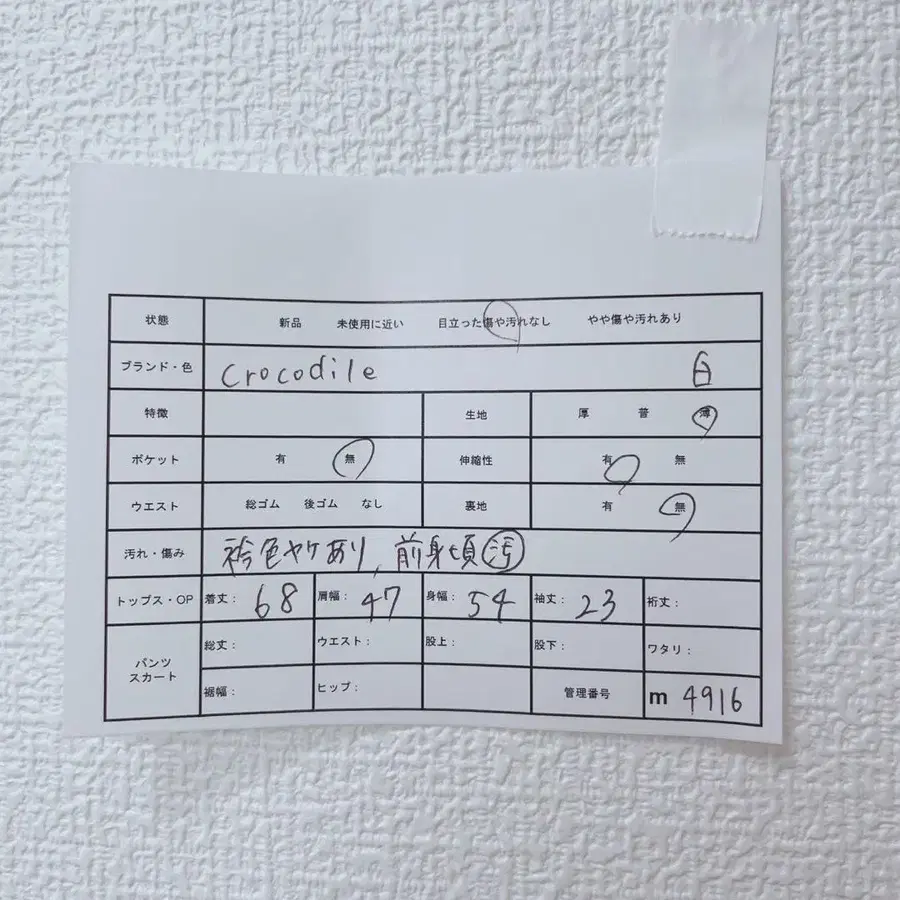 状態 新品 未使用に近い 目立った傷や汚れなし やや傷や汚れあり
ブランド・色 crocodile 白
特徴 生地 厚 普 薄
ポケット 有 無 伸縮性 有 無
ウエスト 総ゴム 後ゴム なし 裏地 有 無
汚れ・傷み 袷色ヤケあり, 前身頃汚
トップス・OP 着丈: 68 肩幅: 47 身幅: 54 袖丈: 23 裄丈:
パンツ スカート 総丈: ウエスト: 股上: 股下: ワタリ:
裾幅: ヒップ: 管理番号 m 4916